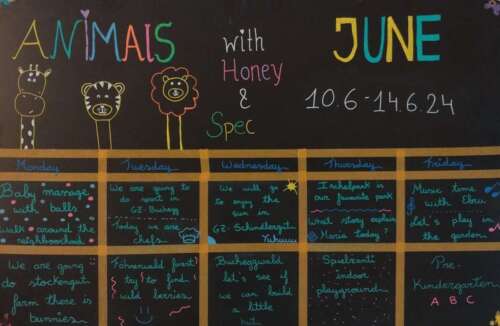 ANIMALS
with
Honey
&
Spec
JUNE
10.6-14.6.24
Monday Tuesday Wednesday Thursday Friday
Baby massage
with balls
walk around the
neighborhood
We are going
to do sport in
GZ-Buhegg
Today we are
chefs
We will go
to enjoy the
sun in
GZ-Schindlergut
Yuhuuu
Irchelpark is
our favourite park
what story explain
Maria today?
Music time
with Ebru
Let's play in
the garden
We are going
to stockengut
farm there is
bunnies
Fohrenwald forest
try to find
wild berries
Bucheggwald
let's see if
we can build
a little
hut
Spielzenti
indoor
playground
Pre-
Kindergarten
A B C